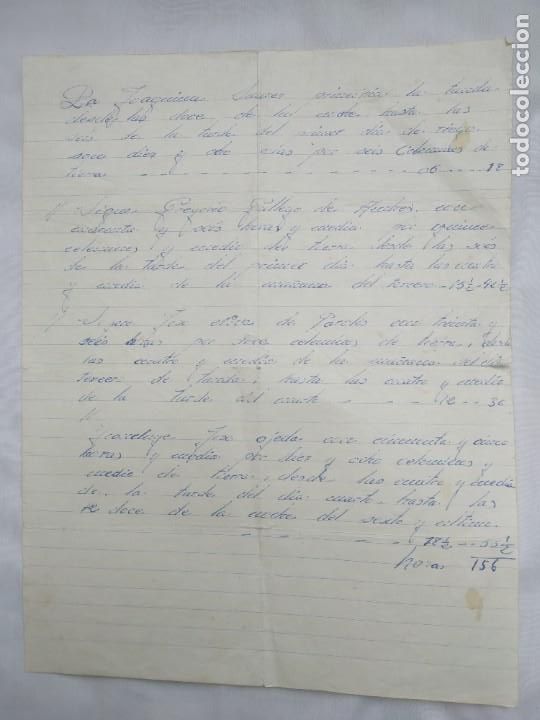 Da Joaquina principia la tanda
desde las doce de la noche hasta las
seis de la tarde del primer dia de riego
diez y ocho por seis celemines de
tierra - - - - - - - - - - 06 - - 18
Sigue Gregorio Gallego de con
cuarenta y seis horas y media por quince
celemines y medio de tierra desde las seis
de la tarde del primer dia hasta las cuatro
y media de la mañana del tercero - 15½ - 46½
Sigue Jose de con treinta y
seis horas por doce celemines de tierra, desde
las cuatro y media de la mañana del dia
tercer de tanda, hasta las cuatro y media
de la tarde del cuarto - - - - 12 - - 36
Concluye Jose Ojeda con cincuenta y cinco
horas y media por diez y ocho celemines y
medio de tierra, desde las cuatro y media
de la tarde del dia cuarto hasta las
doce de la noche del sexto y ultimo
- - - - - - - - 18½ - - 55½
horas 156
todocoleccion